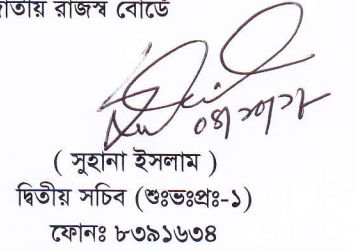 জাতীয় রাজস্ব বোর্ড
০৪/১০/১৮
( সুহানা ইসলাম )
দ্বিতীয় সচিব (শুঃভঃপ্রঃ-১)
ফোনঃ ৮৩৯১৬৩৪